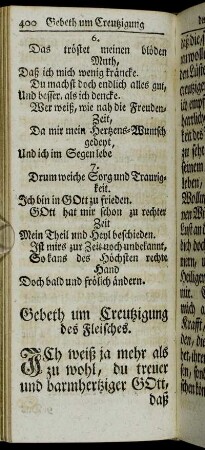 400 Gebeth um Creutzigung
6.
Das tröstet meinen blöden
Muth,
Daß ich mich wenig kräncke.
Du machst doch endlich alles gut,
Und besser, als ich dencke.
Wer weiß, wie nah die Freuden-
Zeit,
Da mir mein Hertzens-Wuntsch
gedeyt,
Und ich im Segen lebe
7.
Drum weiche Sorg und Traurig-
keit.
Ich bin in GOtt zu frieden.
GOtt hat mir schon zu rechter
Zeit
Mein Theil und Heyl beschieden.
Ist mirs zur Zeit noch unbekannt,
So kans des Höchsten rechte
Hand
Doch bald und frölich ändern.
Gebeth um Creutzigung
des Fleisches.
ICh weiß ja mehr als
zu wohl, du treuer
und barmhertziger GOtt,
daß